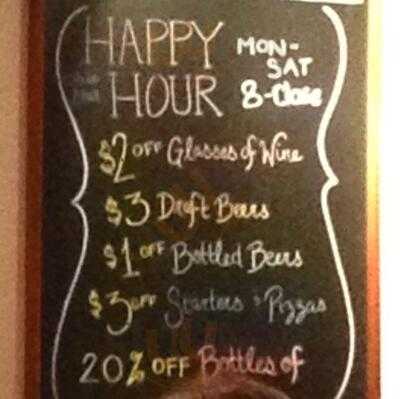 HAPPY MON-
SAT
HOUR 8-Close
$2 OFF Glasses of Wine
$3 Draft Beers
$1 OFF Bottled Beers
$3 OFF Starters & Pizzas
20% OFF Bottles of